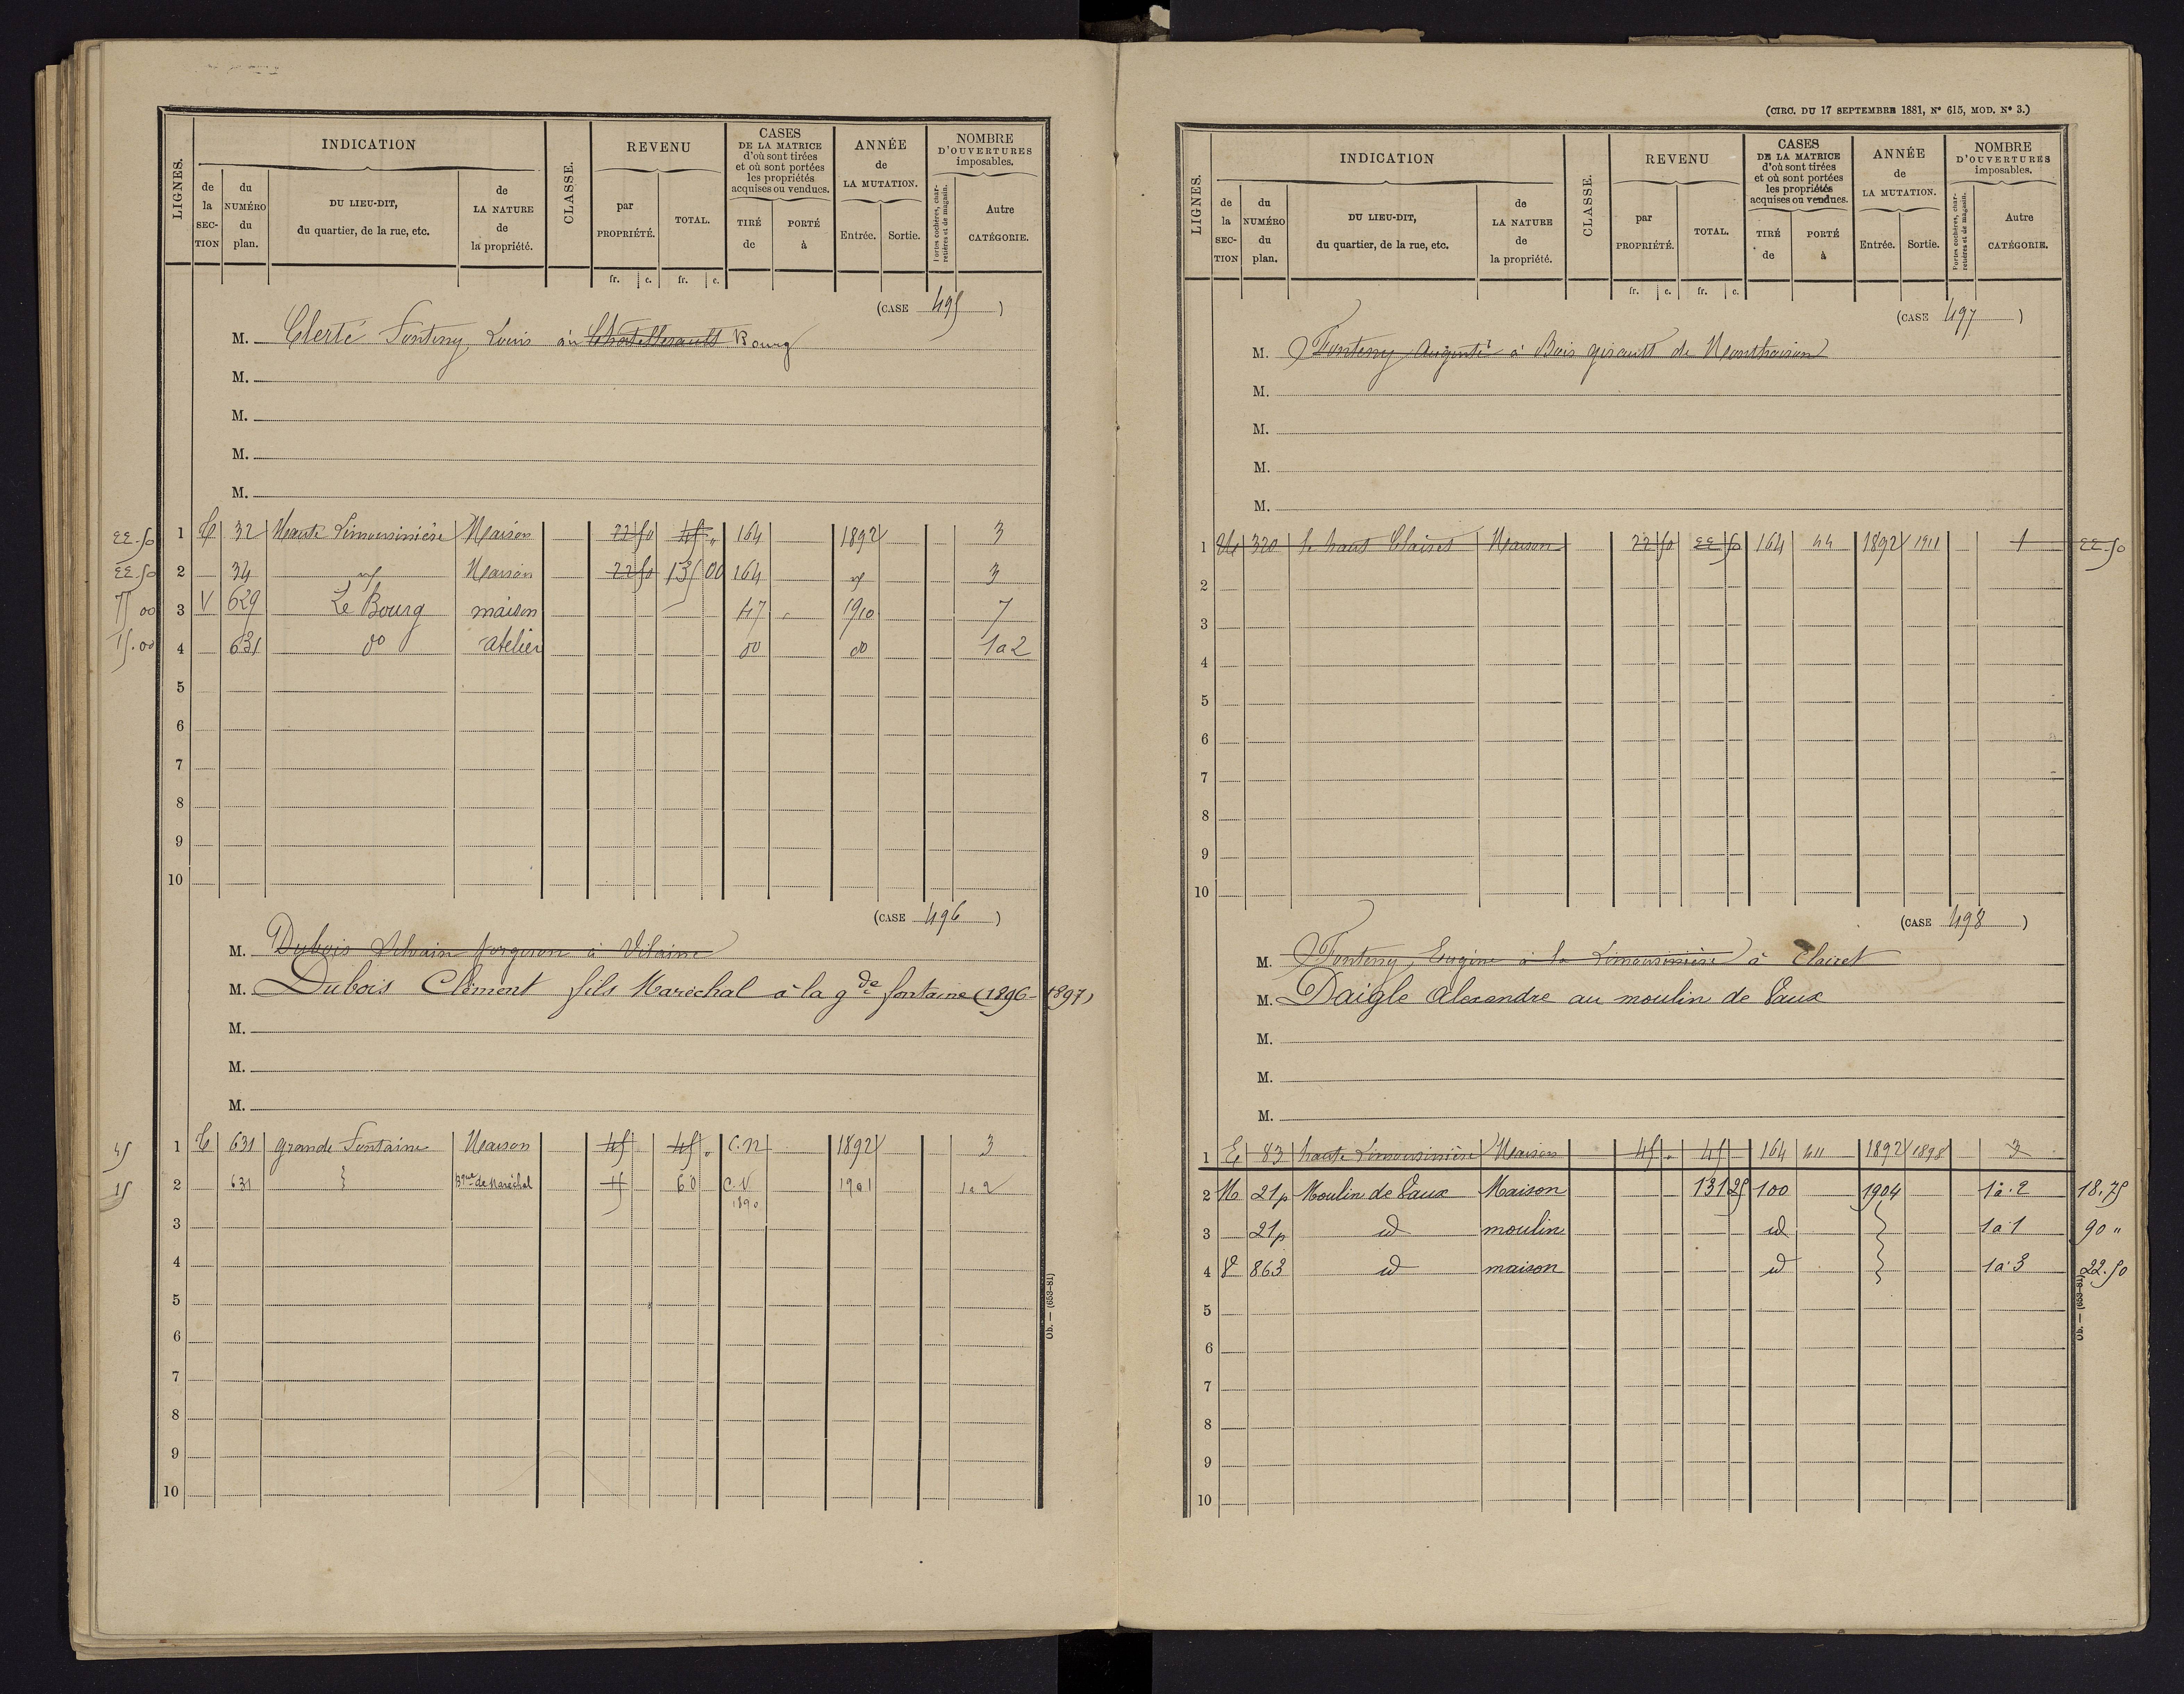 LIGNES.
INDICATION
de la SECTION
du NUMÉRO du plan.
DU LIEU-DIT, du quartier, de la rue, etc.
de LA NATURE de la propriété.
CLASSE.
REVENU
par PROPRIÉTÉ.
TOTAL.
CASES DE LA MATRICE d'où sont tirées et où sont portées les propriétés acquises ou vendues.
TIRÉ de
PORTÉ à
ANNÉE de LA MUTATION.
Entrée.
Sortie.
NOMBRE D'OUVERTURES imposables.
Portes cochères, charretières et de magasin.
Autre CATÉGORIE.
fr. c. fr. c.
(CASE 495)
M. Clerté Fonteny Louis au Chatellerault Bourg
M.
M.
M.
M.
22.50 1 C 32 Haute Limousinière Maison 22 50 45 " 164 1892 3
22.50 2 34 Maison 22 50 135 00 164 3
75 00 3 V 629 Le Bourg maison 47 1910 7
15.00 4 631 do atelier do do 1a2
5
6
7
8
9
10
(CASE 496)
M. Dubois Silvain forgeron à Vilaine
M. Dubois Clément fils Maréchal à la gde fontaine (1896-1897)
M.
M.
M.
45 1 C 631 grande Fontaine Maison 45 45 " C.N 1892 3
15 2 631 Bque de Maréchal 15 60 C.N 1890 1901 1a2
3
4
5
6
7
8
9
10
Ob. — (653-81)
(CIRC. DU 17 SEPTEMBRE 1881, N° 615, MOD. N° 3.)
LIGNES.
INDICATION
de la SECTION
du NUMÉRO du plan.
DU LIEU-DIT, du quartier, de la rue, etc.
de LA NATURE de la propriété.
CLASSE.
REVENU
par PROPRIÉTÉ.
TOTAL.
CASES DE LA MATRICE d'où sont tirées et où sont portées les propriétés acquises ou vendues.
TIRÉ de
PORTÉ à
ANNÉE de LA MUTATION.
Entrée.
Sortie.
NOMBRE D'OUVERTURES imposables.
Portes cochères, charretières et de magasin.
Autre CATÉGORIE.
fr. c. fr. c.
(CASE 497)
M. Fonteny à Bois girault de Monthoiron
M.
M.
M.
M.
1 320 le haut Clairet Maison 22 50 22 50 164 44 1892 1911 1 22.50
2
3
4
5
6
7
8
9
10
(CASE 498)
M. Fonteny, Eugène à la Limousinière à Clairet
M. Daigle Alexandre au moulin de Vaux
M.
M.
M.
1 E 83 haute Limousinière Maison 45 " 45 164 1892 1898 3
2 M 21p Moulin de Vaux Maison 131 25 100 1904 1à2 18.75
3 21p id moulin id 1à1 90 "
4 863 id maison id 1à3 22.50
5
6
7
8
9
10
Ob. — (653-81)